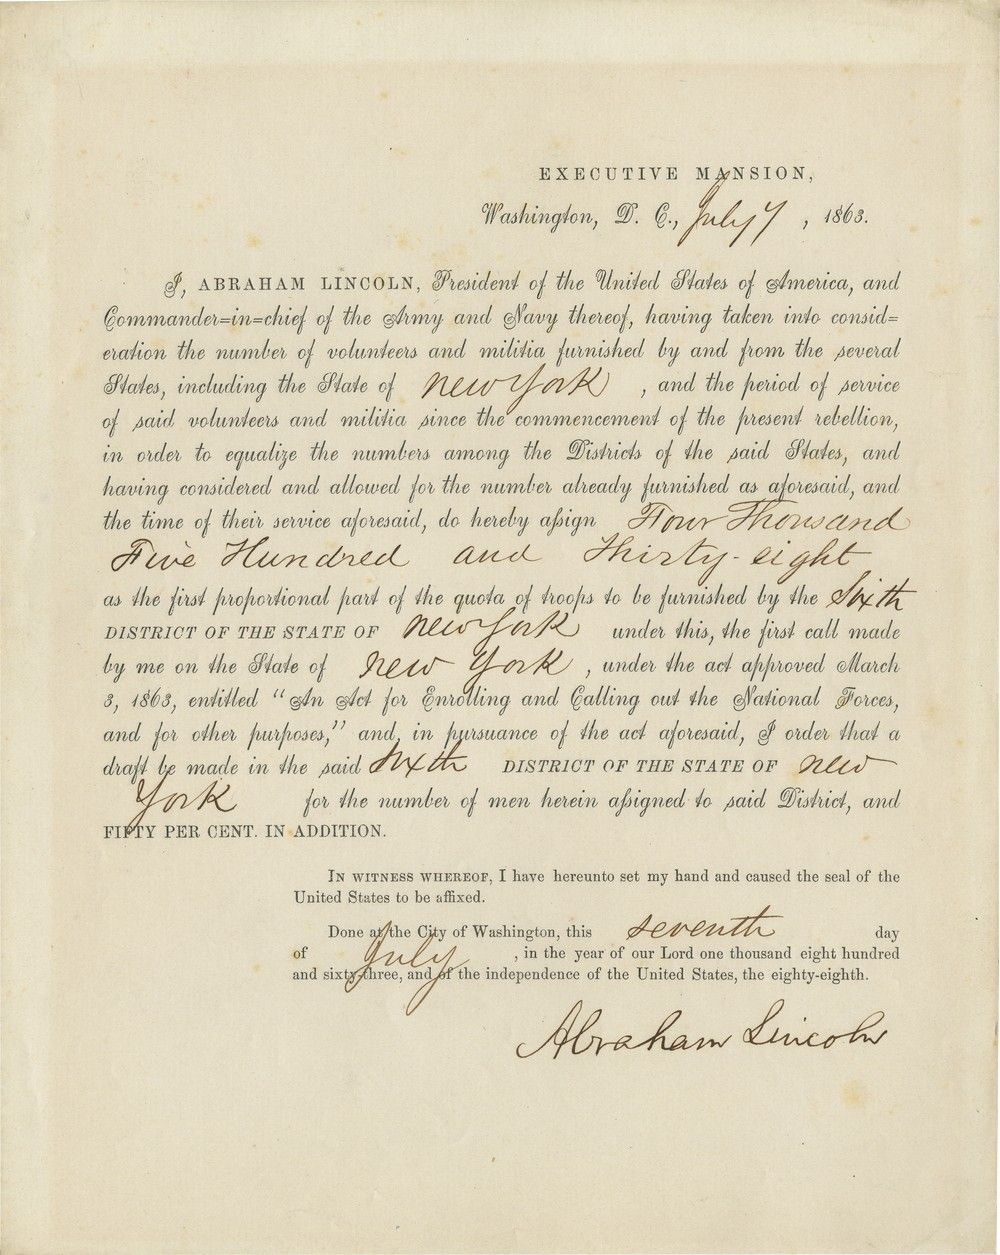 EXECUTIVE MANSION,
Washington, D. C., July 7, 1863.
I, ABRAHAM LINCOLN, President of the United States of America, and
Commander=in=chief of the Army and Navy thereof, having taken into consid=
eration the number of volunteers and militia furnished by and from the several
States, including the State of New York, and the period of service
of said volunteers and militia since the commencement of the present rebellion,
in order to equalize the numbers among the Districts of the said States, and
having considered and allowed for the number already furnished as aforesaid, and
the time of their service aforesaid, do hereby aſsign Four Thousand
Five Hundred and Thirty-eight
as the first proportional part of the quota of troops to be furnished by the Sixth
DISTRICT OF THE STATE OF New York under this, the first call made
by me on the State of New York, under the act approved March
3, 1863, entitled "An Act for Enrolling and Calling out the National Forces,
and for other purposes," and, in pursuance of the act aforesaid, I order that a
draft be made in the said Sixth DISTRICT OF THE STATE OF New
York for the number of men herein aſsigned to said District, and
FIFTY PER CENT. IN ADDITION.
IN WITNESS WHEREOF, I have hereunto set my hand and caused the seal of the
United States to be affixed.
Done at the City of Washington, this seventh day
of July, in the year of our Lord one thousand eight hundred
and sixty-three, and of the independence of the United States, the eighty-eighth.
Abraham Lincoln